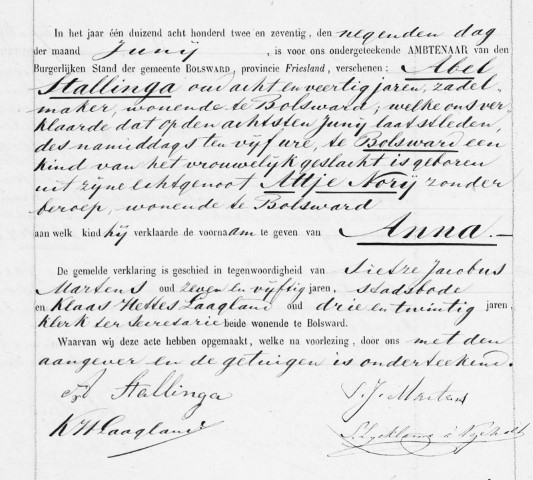 In het jaar één duizend acht honderd twee en zeventig, den negenden dag
der maand Junij, is voor ons ondergeteekende AMBTENAAR van den
Burgerlijken Stand der gemeente BOLSWARD, provincie Friesland, verschenen: Abel
Stallinga oud acht en veertig jaren, zadel-
maker, wonende te Bolsward; welke ons ver-
klaarde dat op den achtsten Junij laatstleden,
des namiddags ten vijf ure, te Bolsward een
kind van het vrouwelijk geslacht is geboren
uit zijne echtgenoot Attje Norij zonder
beroep, wonende te Bolsward
aan welk kind hij verklaarde de voornaam te geven van Anna.—
De gemelde verklaring is geschied in tegenwoordigheid van Sietze Jacobus
Martens oud zeven en vijftig jaren, stadsbode
en Klaas Hettes Laagland oud drie en twintig jaren,
klerk ter Secretarie beide wonende te Bolsward.
Waarvan wij deze acte hebben opgemaakt, welke na voorlezing, door ons met den
aangever en de getuigen is onderteekend.
A Stallinga
S. J. Martens
K H Laagland